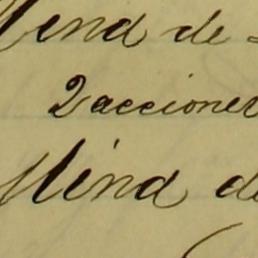 Mina de
2 acciones
Mina de